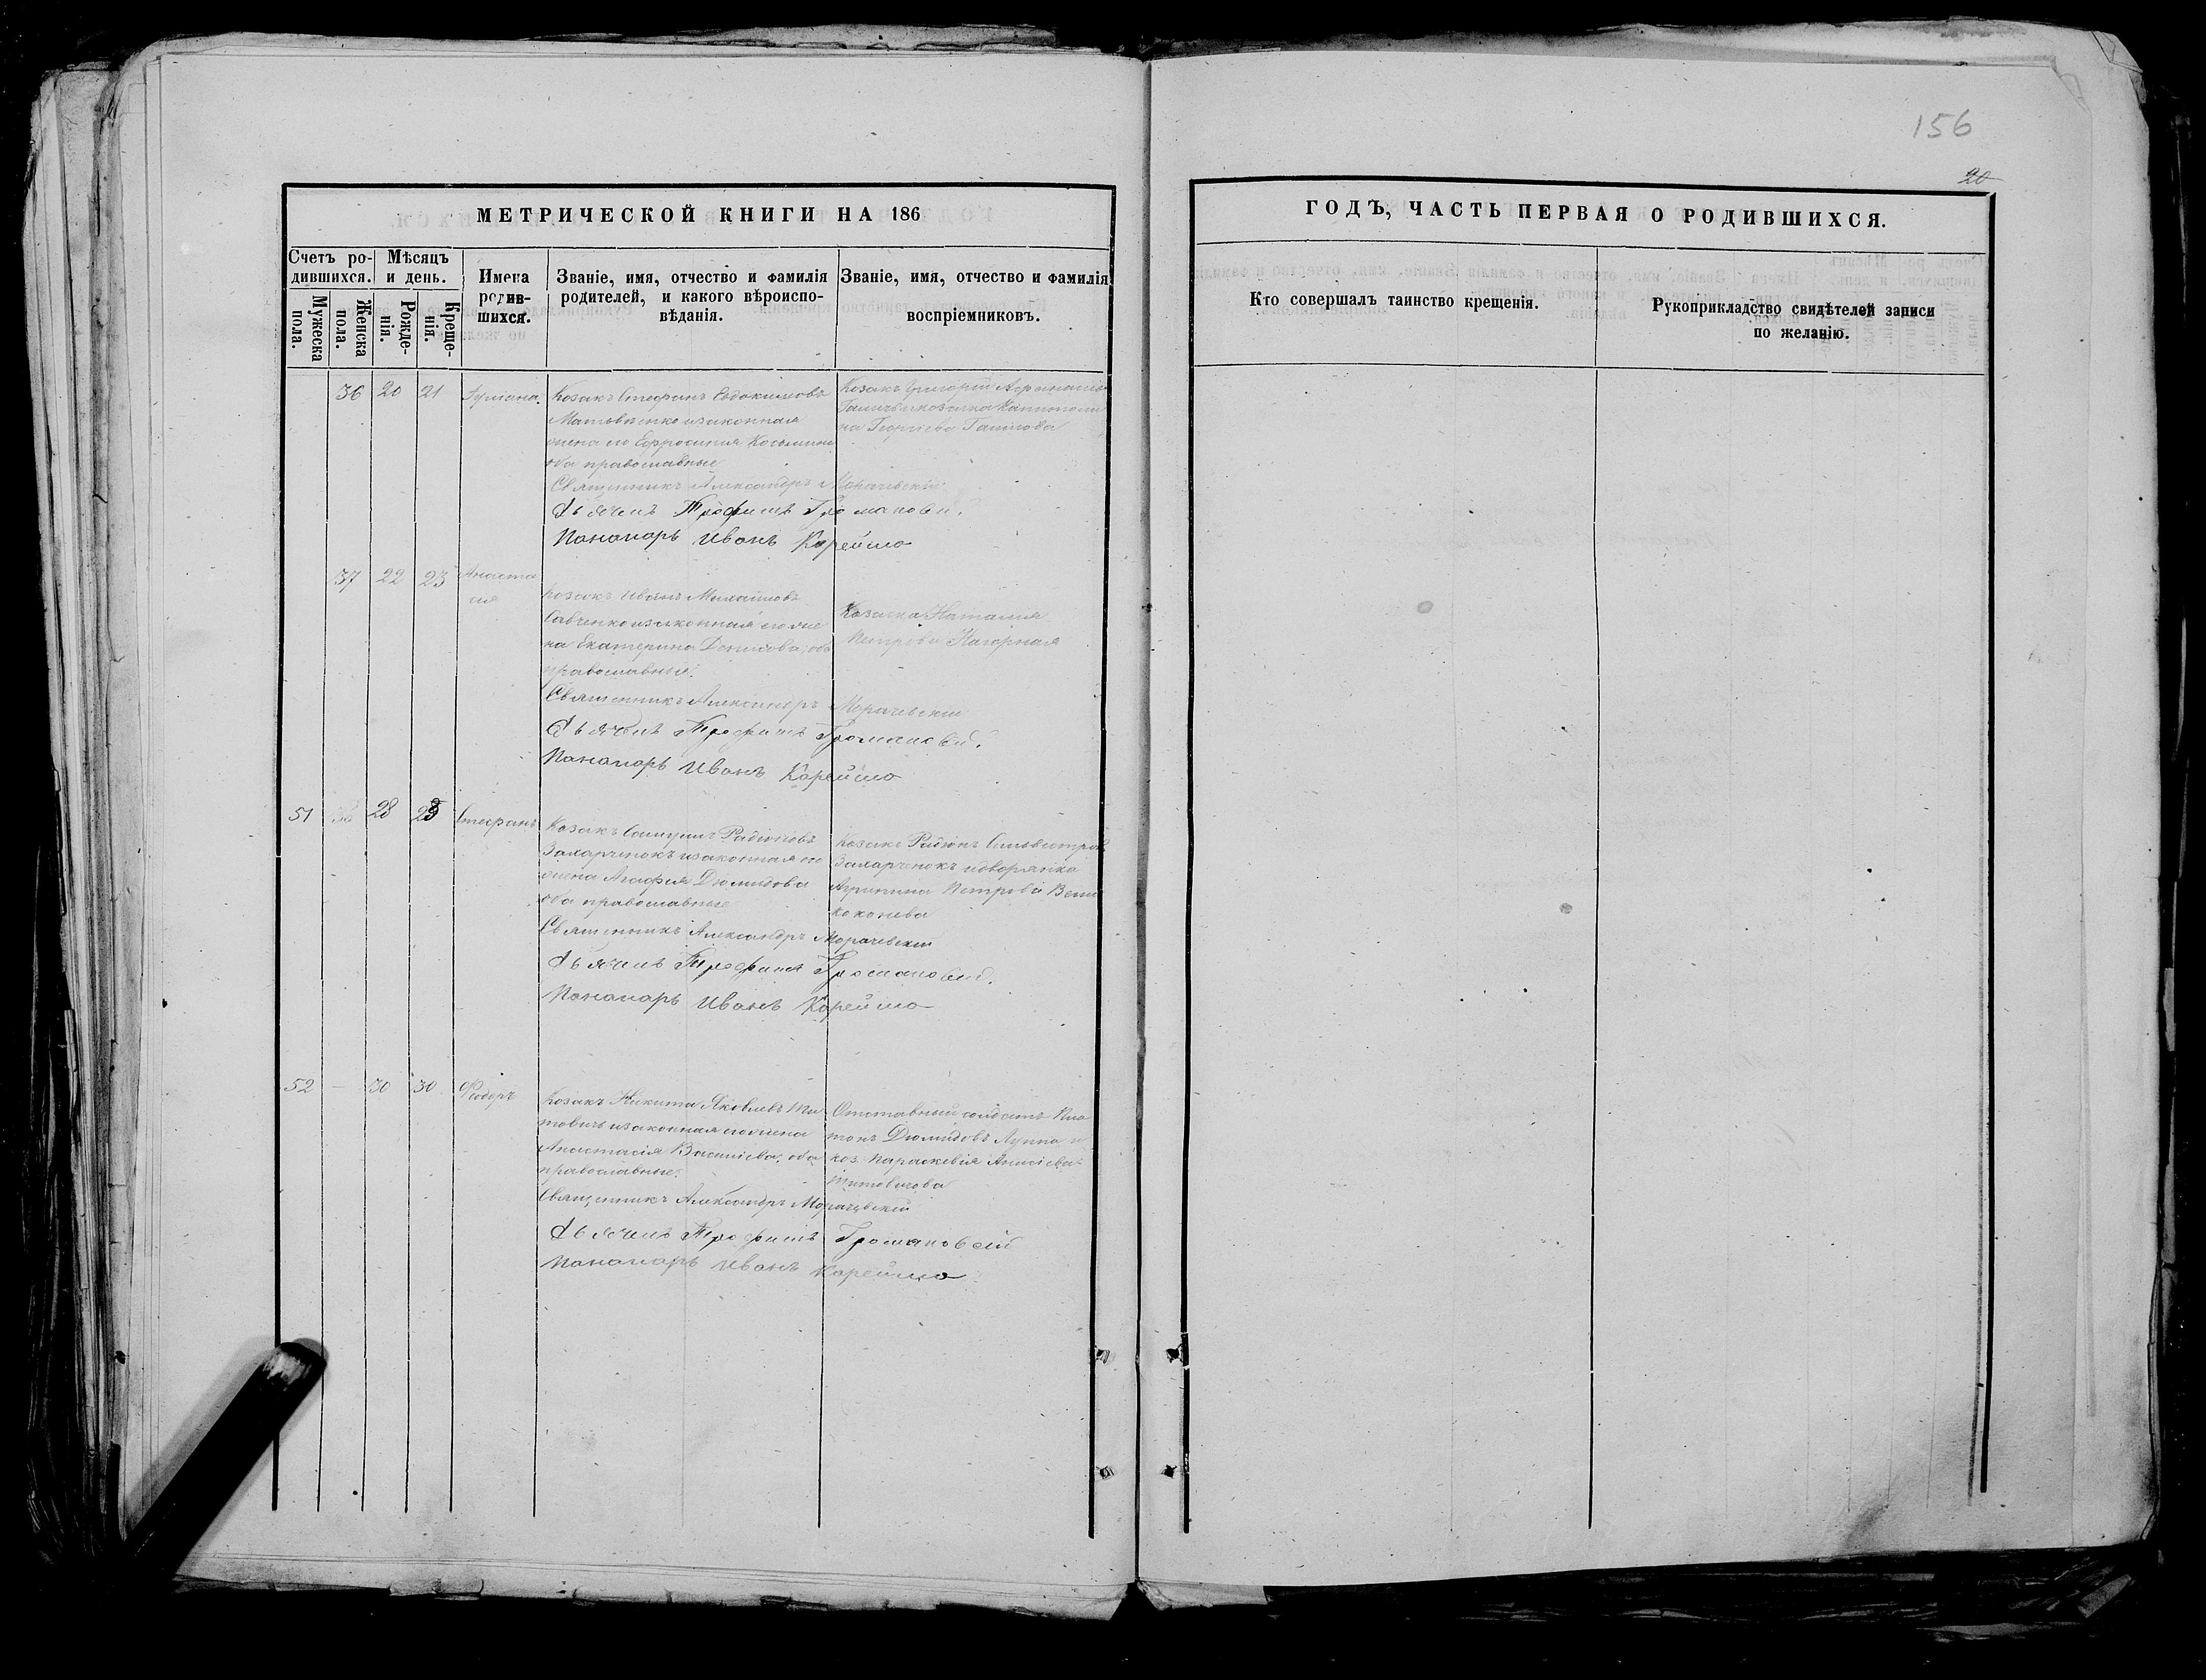 156
20
МЕТРИЧЕСКОЙ КНИГИ НА 186
ГОДЪ, ЧАСТЬ ПЕРВАЯ О РОДИВШИХСЯ.
Счетъ ро-
дившихся.
Мѣсяцъ
и день.
Мужеска
пола.
Женска
пола.
Рожде-
нія.
Креще-
нія.
Имена
родив-
шихся.
Званіе, имя, отчество и фамилія
родителей, и какого вѣроиспо-
вѣданія.
Званіе, имя, отчество и фамилія
воспріемниковъ.
Кто совершалъ таинство крещенія.
Рукоприкладство свидѣтелей записи
по желанію.
36 20 21
Козакъ Стефанъ Евдокимовъ
Матвѣенко и законная
жена его Ефросинія Косьмина
оба православные
Козакъ Григорій
на Георгіева
Священникъ Александръ Морачевскій
Дьячекъ Трофимъ
Понамарь Иванъ Карейшо
37 22 23 Анаста
сія
Козакъ Иванъ Михайловъ
Савченко и законная его же
на Екатерина Демидова, оба
православные.
Козачка Наталія
Петрова Нагорная
Священникъ Александръ Морачевскій
Дьячекъ Трофимъ
Понамарь Иванъ Карейшо
51 28 Стефанъ
Козакъ Самуилъ Радіоновъ
Захарченокъ и законная его
жена Агафія Дiомидова
оба православные
Козакъ Радіонъ Сильвестровъ
Захарченокъ и дворянка
Агрипина Петрова Вели
коконева
Священникъ Александръ Морачевскій
Дьячекъ Трофимъ
Понамарь Иванъ Карейшо
52 - 30 30 Феодоръ
Козакъ Никита Яковлевъ Ти
товичъ и законная его жена
Анастасія Василіева, оба
православные.
Отставный солдатъ Пла
тонъ Діомидовъ Луппа и
коз. Параскевія
Титовичова
Священникъ Александръ Морачевскій
Дьячекъ Трофимъ
Понамарь Иванъ Карейшо